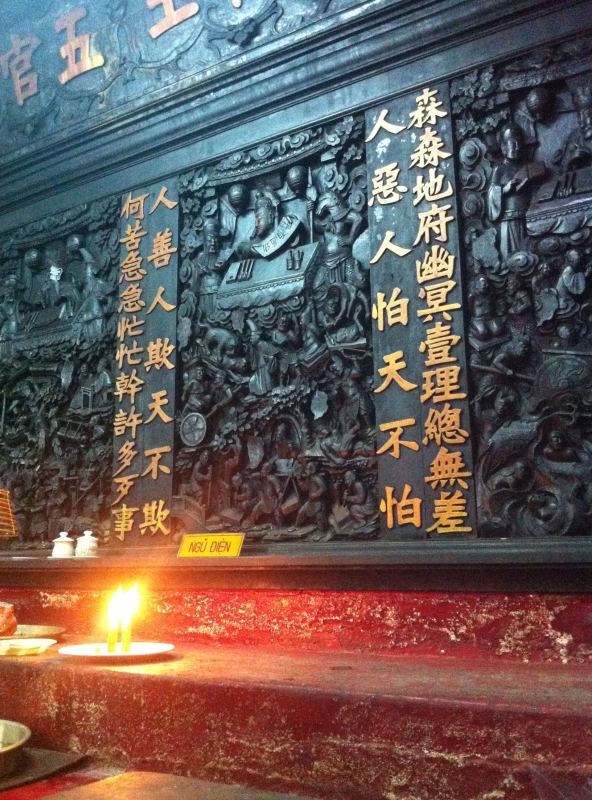 官五
森森地府幽冥壹理總無差
人惡人怕天不怕
人善人欺天不欺
何苦急急忙忙幹許多歹事
NGỦ DIÊN